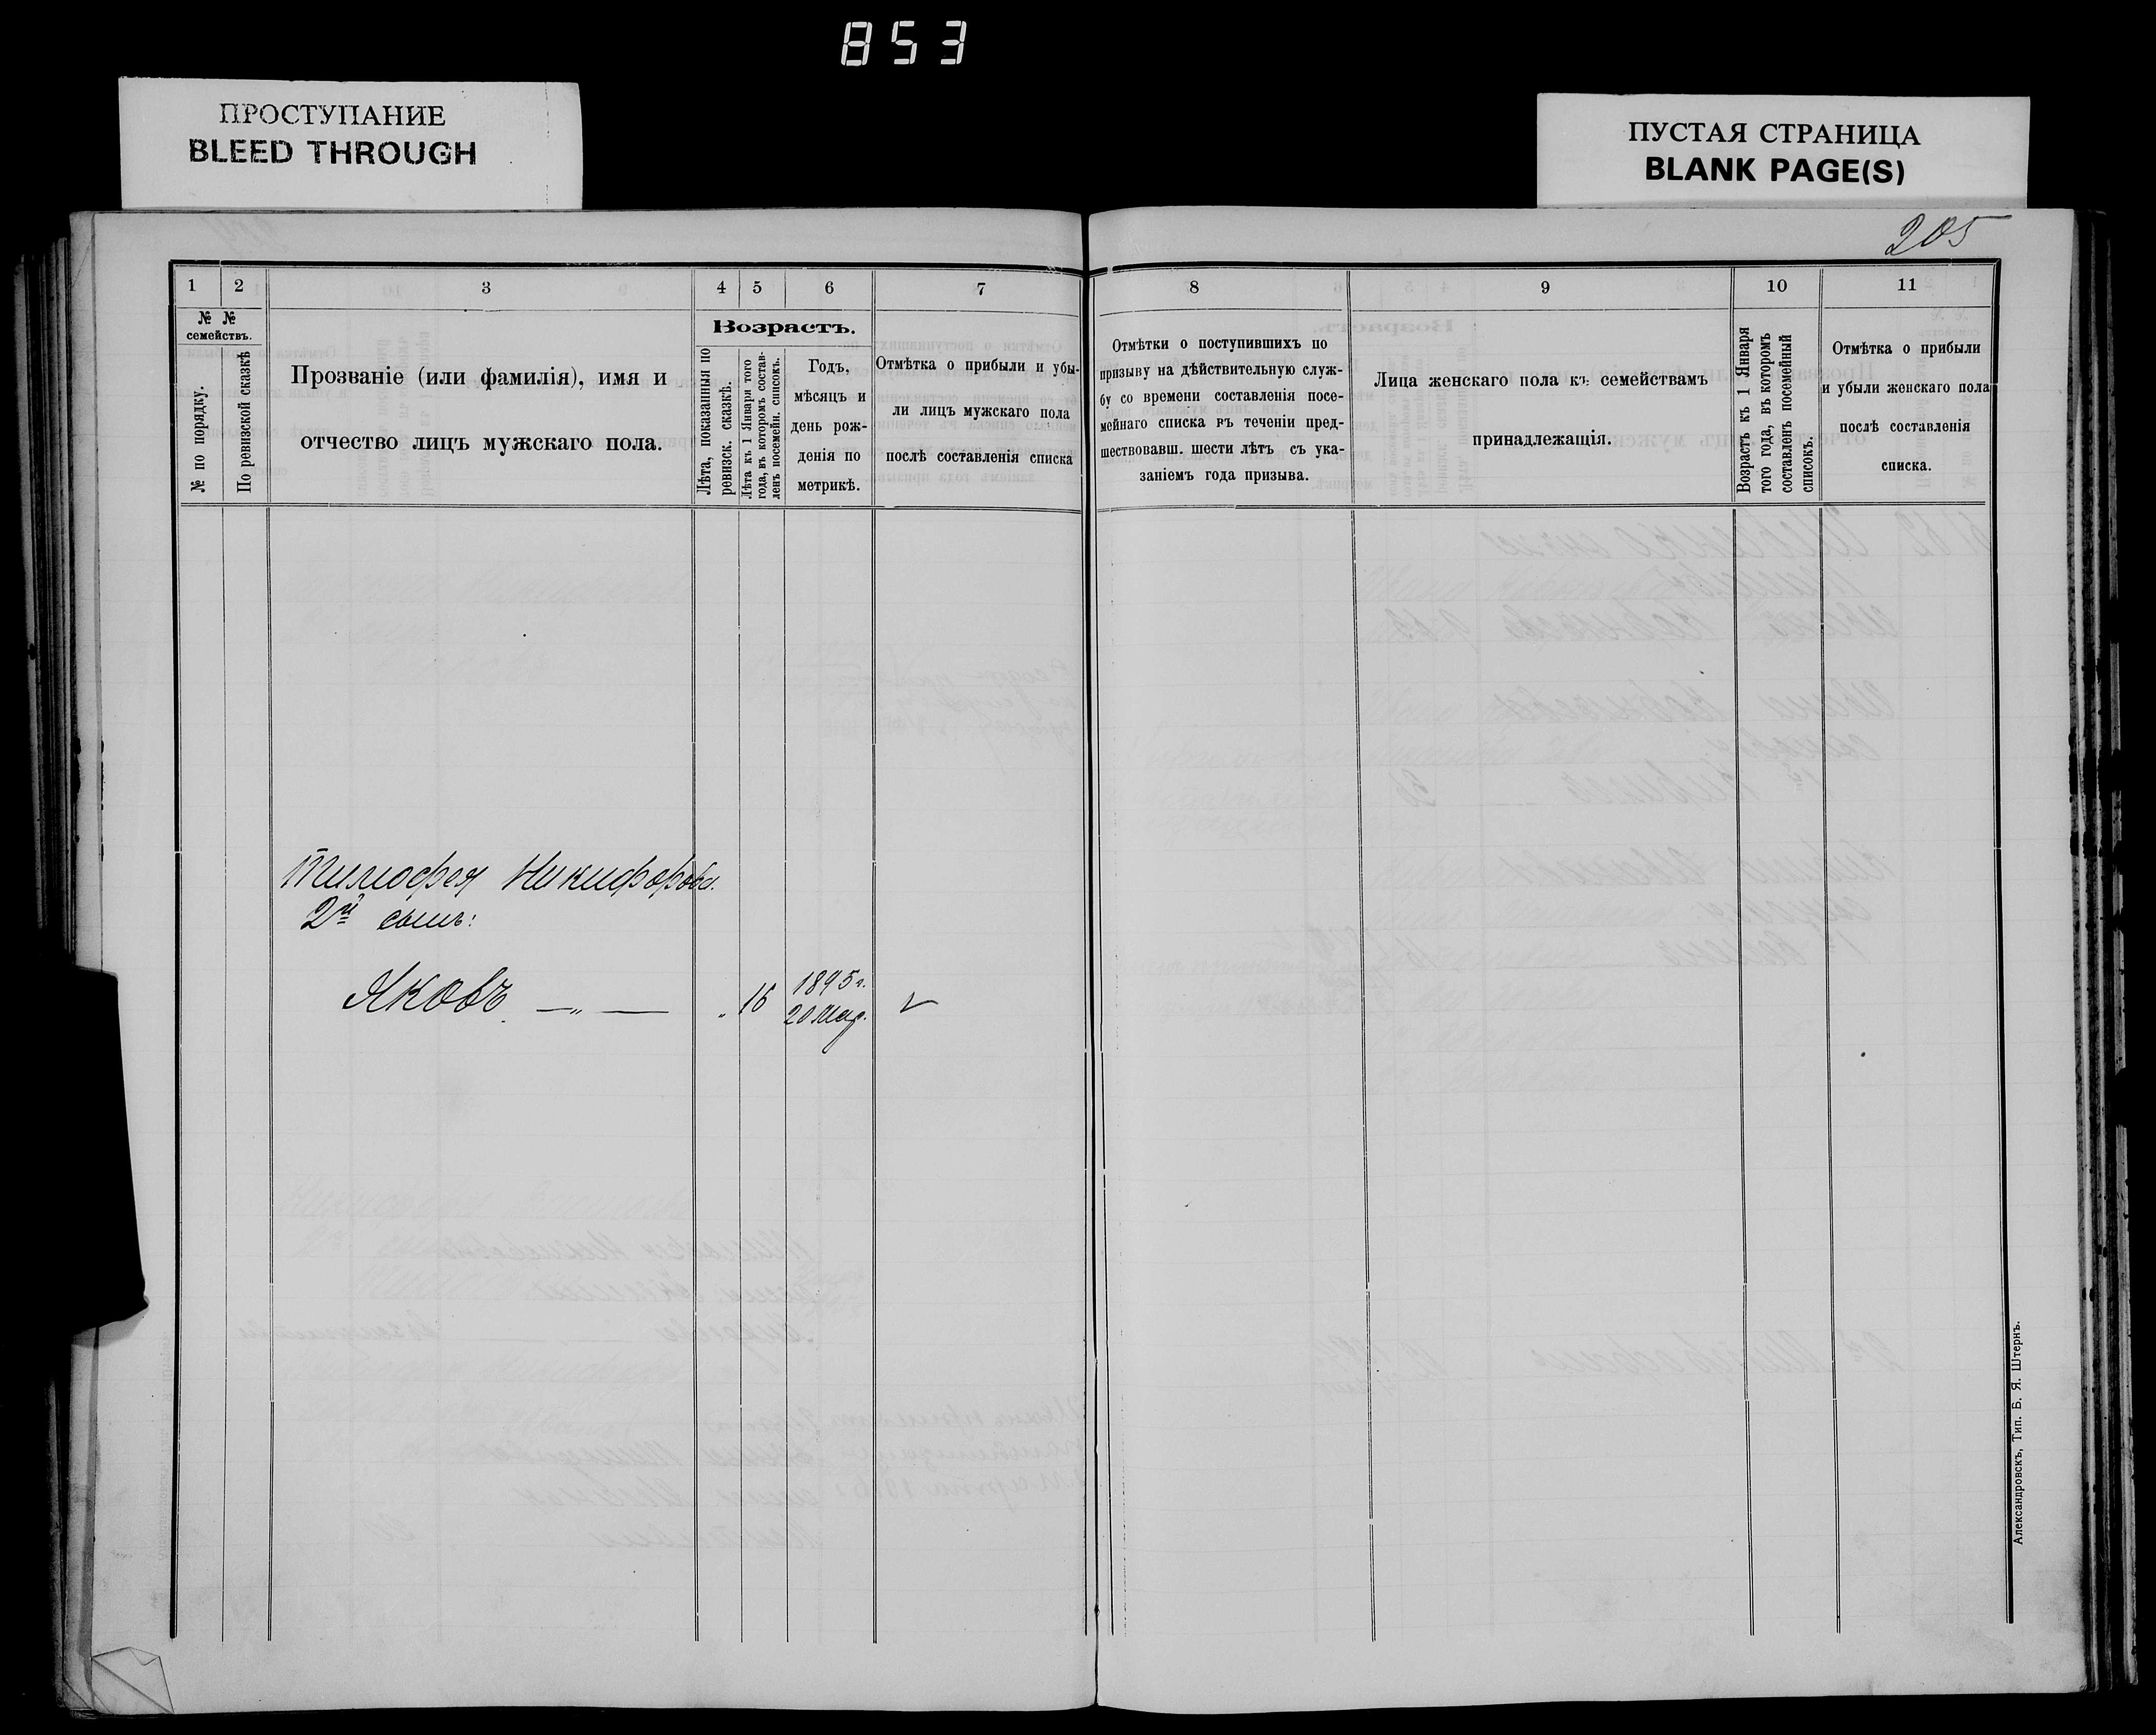 853
ПРОСТУПАНИЕ
BLEED THROUGH
ПУСТАЯ СТРАНИЦА
BLANK PAGE(S)
205
1 2 3 4 5 6 7
№ №
семействъ.
№ по порядку.
По ревизской сказкѣ
Прозваніе (или фамилія), имя и
отчество лицъ мужскаго пола.
Возрастъ.
Лѣта, показанныя по
ревизск. сказкѣ.
Лѣта къ 1 Января того
года, въ которомъ состав-
ленъ посемейн. списокъ.
Годъ,
мѣсяцъ и
день рож-
денія по
метрикѣ.
Отмѣтка о прибыли и убы-
ли лицъ мужскаго пола
послѣ составленія списка
8 9 10 11
Отмѣтки о поступившихъ по
призыву на дѣйствительную служ-
бу со времени составленія посе-
мейнаго списка въ теченіи пред-
шествовавш. шести лѣтъ съ ука-
заніемъ года призыва.
Лица женскаго пола къ семействамъ
принадлежащія.
Возрастъ къ 1 Января
того года, въ которомъ
составленъ посемейный
списокъ.
Отмѣтка о прибыли
и убыли женскаго пола
послѣ составленія
списка.
Тимофея Никифорова.
2й сынъ:
Яковъ — „ — „ 16 1895 г.
20 Мар.
Александровскъ, Тип. Б. Я. Штернъ.